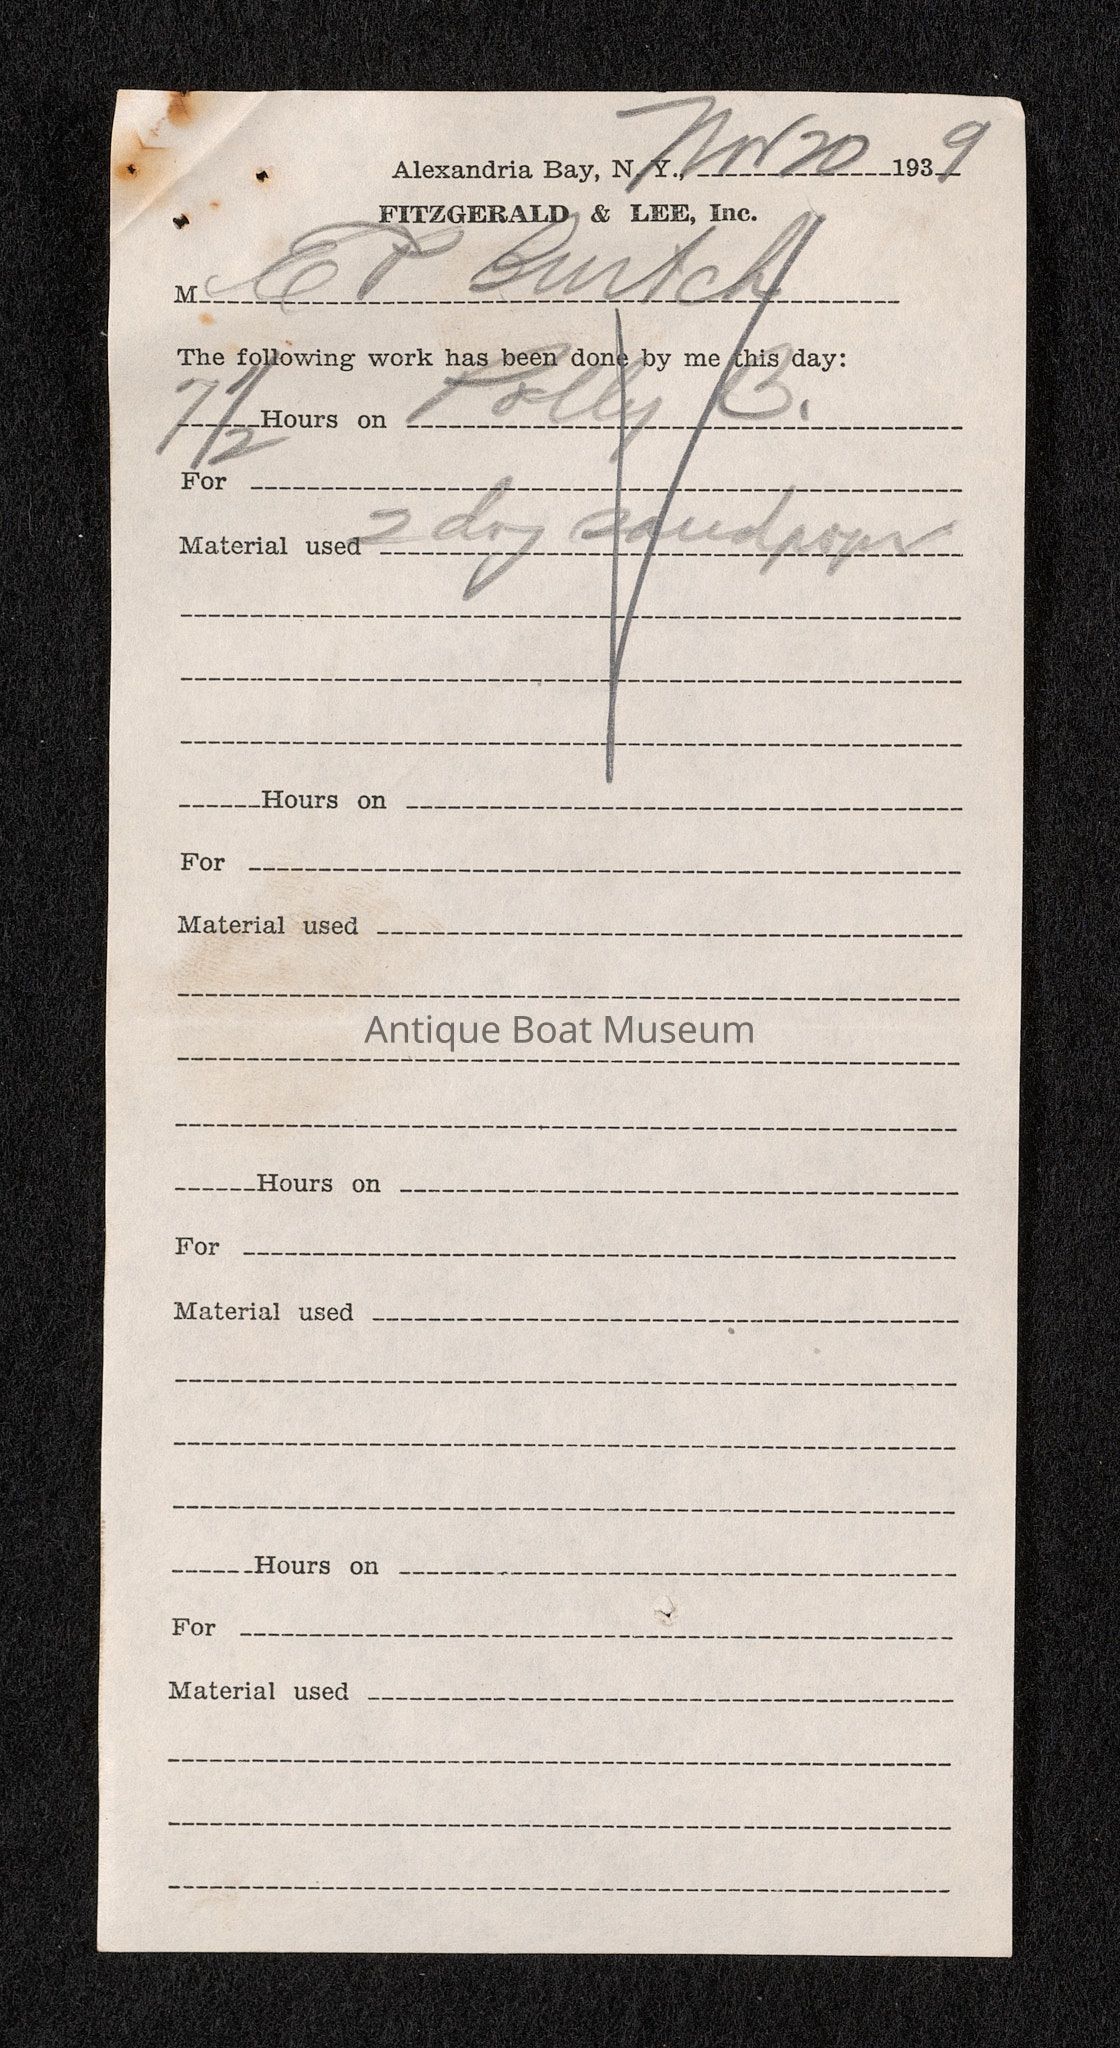 Alexandria Bay, N. Y., Nov 20 1939
FITZGERALD & LEE, Inc.
M E P Burtch
The following work has been done by me this day:
7 1/2 Hours on Polly B.
For
Material used 2 dry sandpaper
Hours on
For
Material used
Antique Boat Museum
Hours on
For
Material used
Hours on
For
Material used